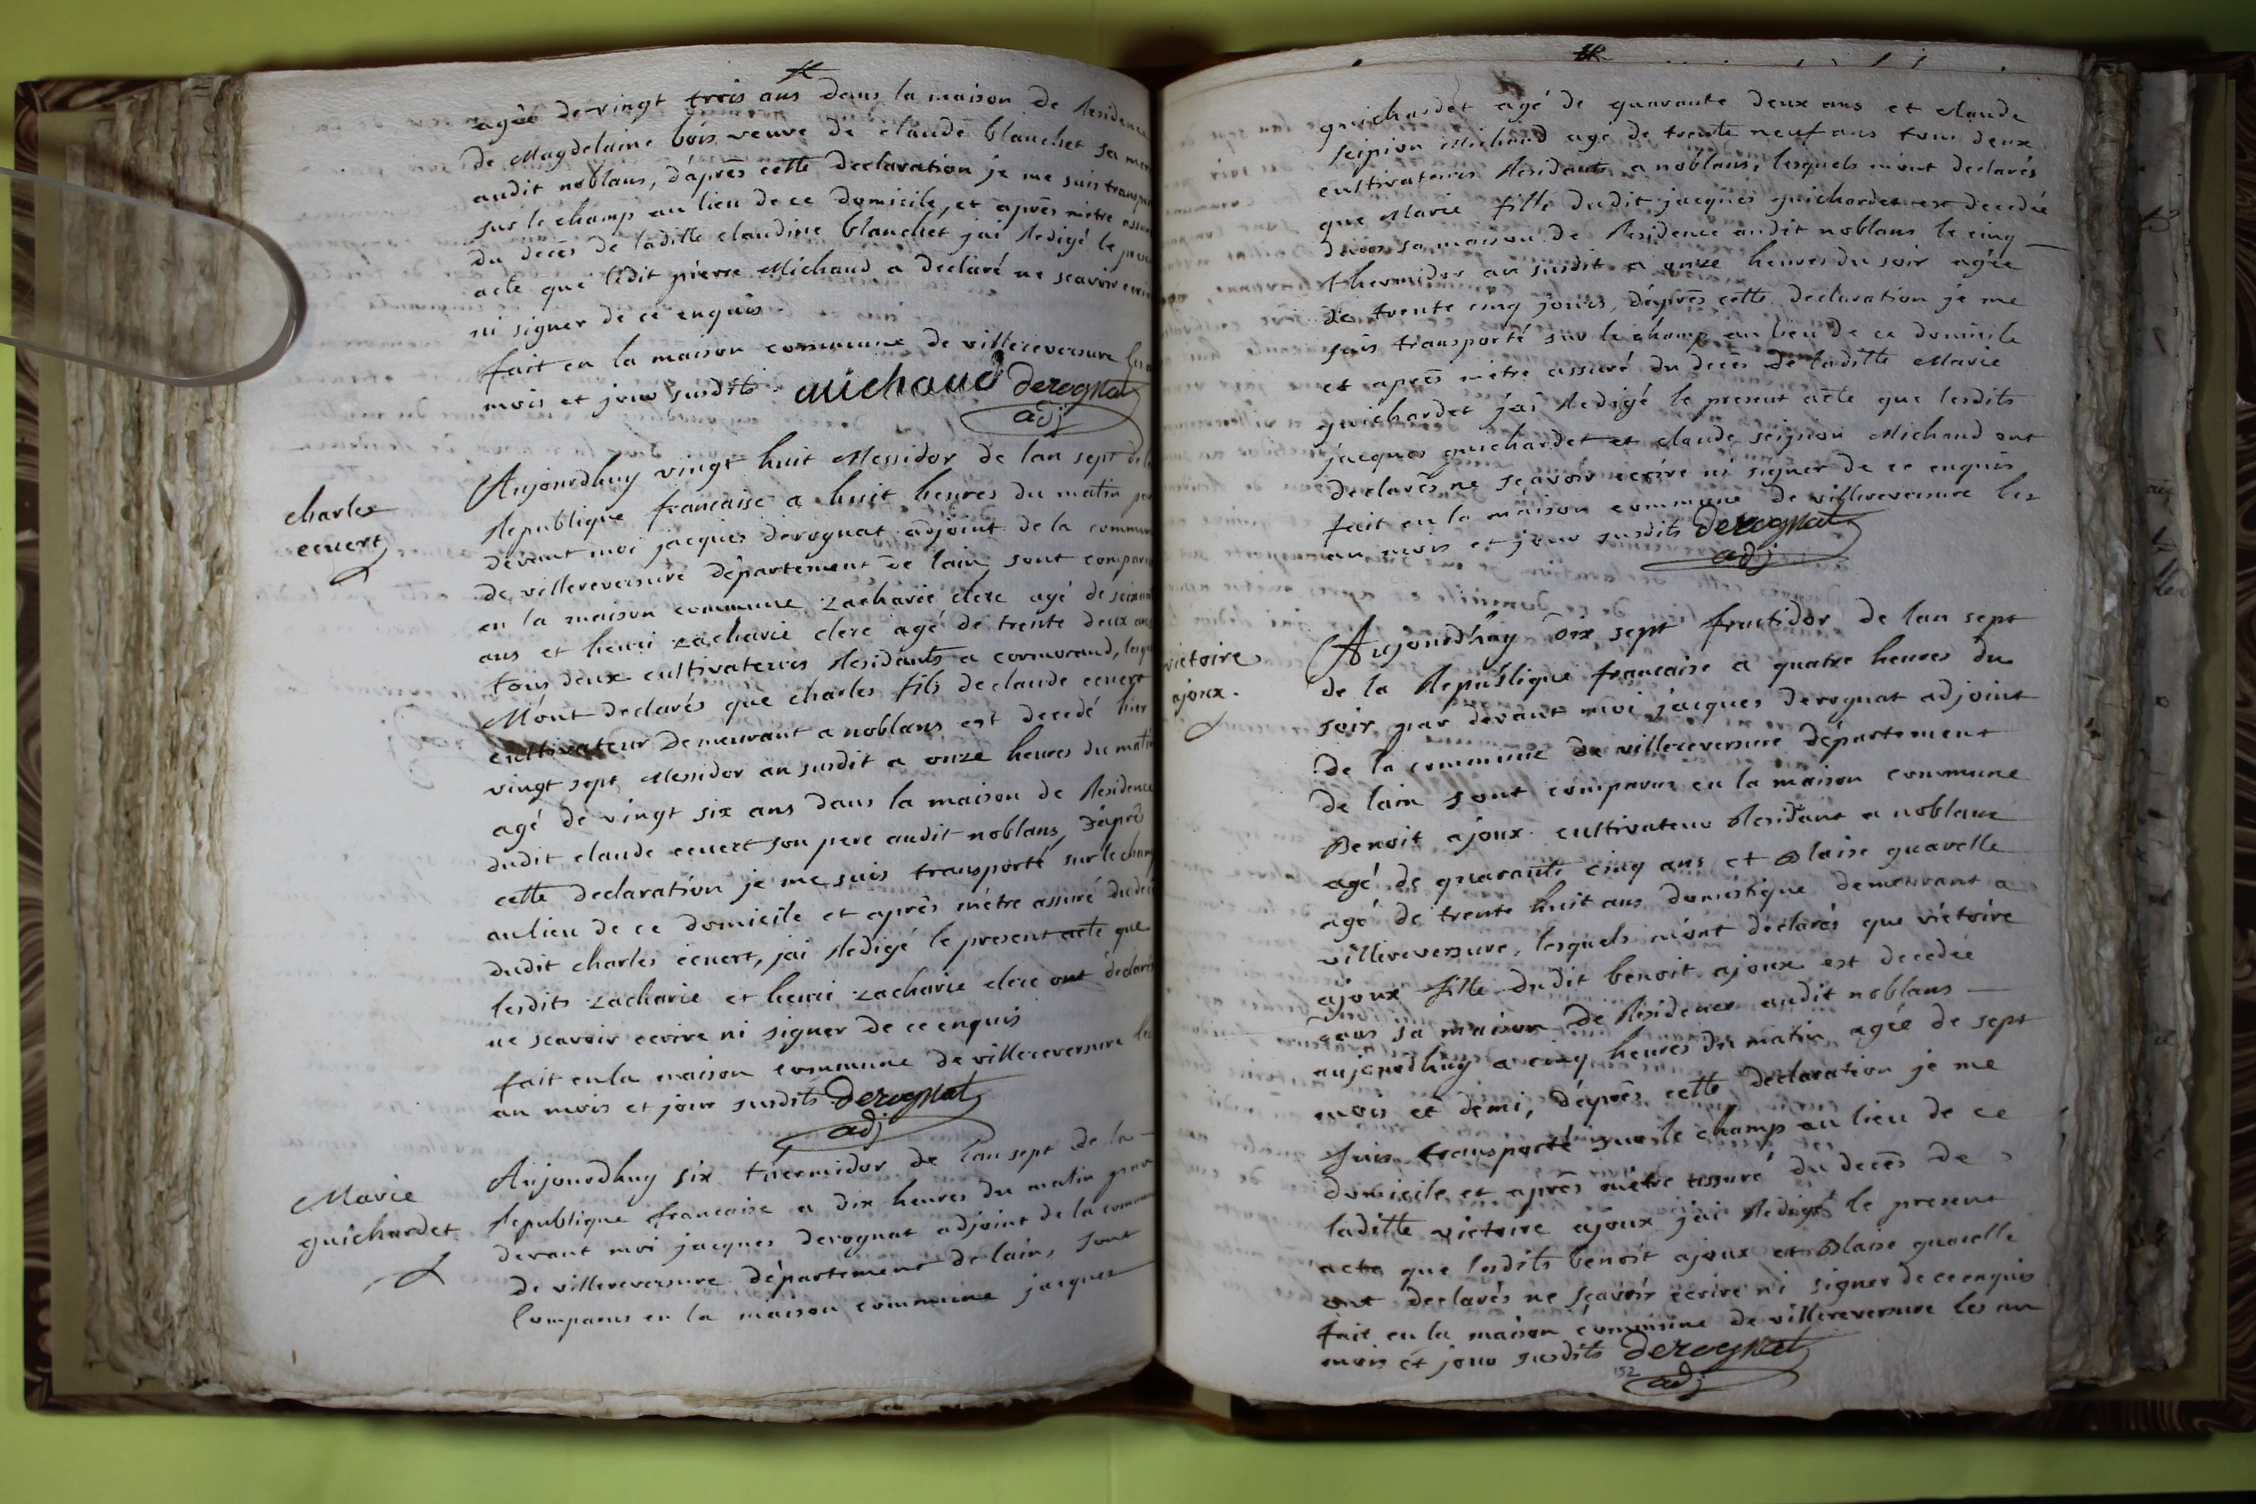 agée de vingt trois ans dans la maison de Residence
de Magdelaine bois veuve de claude blanchet sa mere
audit noblans, d'aprês cette declaration je me suis transpor
sur le champ au lieu de ce domicile, et aprês mètre assu
du decês de ladille claudine blanchet jai Redigé le
acte que ledit pierre Michaud a declaré ne scavoir
ni signer de ce enquis
fait en la maison commune de villereversure
mois et jour susdits michaud derognat
adj
charles
ecuert
Aujourdhuy vingt huit Messidor de lan sept de
Republique francaise a huit heures du matin par
devant moi jacques derognat adjoint de la commun
de villereversure département de lain, sont comparu
en la maison commune zacharie clerc agé de soixant
ans et henri zacharie clerc agé de trente deux ans
tous deux cultivateurs Residants a cormorand, lesqu
M'ont declarés que charles fils de claude ecuert
cultivateur demeurant a noblans est decedé hier
vingt sept Messidor an susdit a onze heures du matin
agé de vingt six ans dans la maison de Residence
dudit claude ecuert son pere audit noblans, d'aprês
cette declaration je me suis transporté sur le champ
au lieu de ce domicile et aprês mètre assuré du decê
dudit charles ecuert, jai Redigé le present acte que
lesdits zacharie et henri zacharie clerc ont declarés
ne scavoir ecrire ni signer de ce enquis
fait en la maison commune de villereversure les
an mois et jour susdits derognat
adj
Marie
guichardet
Aujourdhuy six thermidor de lan sept de la
Republique francaise a dix heures du matin par
devant moi jacques derognat adjoint de la commun
de villereversure département de lain, sont
Comparus en la maison commune jacques
guichardet agé de quarante deux ans et claude
scipion Michaud agé de trente neuf ans tous deux
cultivateurs Residants a noblans, lesquels m'ont declarés
que Marie fille dudit jacques guichardet est decedée
dans sa maison de Residence audit noblans le cinq
thermidor an susdit a onze heures du soir agée
de trente cinq jours, d'aprês cette declaration je me
suis transporté sur le champ au lieu de ce domicile
et aprês mètre assuré du decês de ladille Marie
guichardet jai Redigé le present acte que lesdits
jacques guichardet et claude scipion Michaud ont
declarês ne scavoir ecrire ni signer de ce enquis
fait en la maison commune de villereversure les
an mois et jour susdits derognat
adj
victoire
ajoux
Aujourdhuy dix sept fructidor de lan sept
de la Republique francaise a quatre heures du
soir par devant moi jacques derognat adjoint
de la commune de villereversure département
de lain sont comparus en la maison commune
Benoit ajoux cultivateur Residant a noblans
agé de quarante cinq ans et Blaise guavelle
agé de trente huit ans domestique demeurant a
villereversure, lesquels m'ont declarés que victoire
ajoux fille dudit benoit ajoux est decedée
dans sa maison de Residence audit noblans
aujourdhuy a cinq heures du matin agée de sept
mois et demi, d'aprês cette declaration je me
suis transporté sur le champ au lieu de ce
domicile et aprês mètre assuré du decês de
ladille victoire ajoux jai Redigé le present
acte que lesdits benoit ajoux et Blaise guavelle
ont declarés ne scavoir ecrire ni signer de ce enquis
fait en la maison commune de villereversure les an
mois et jour susdits derognat
152 adj